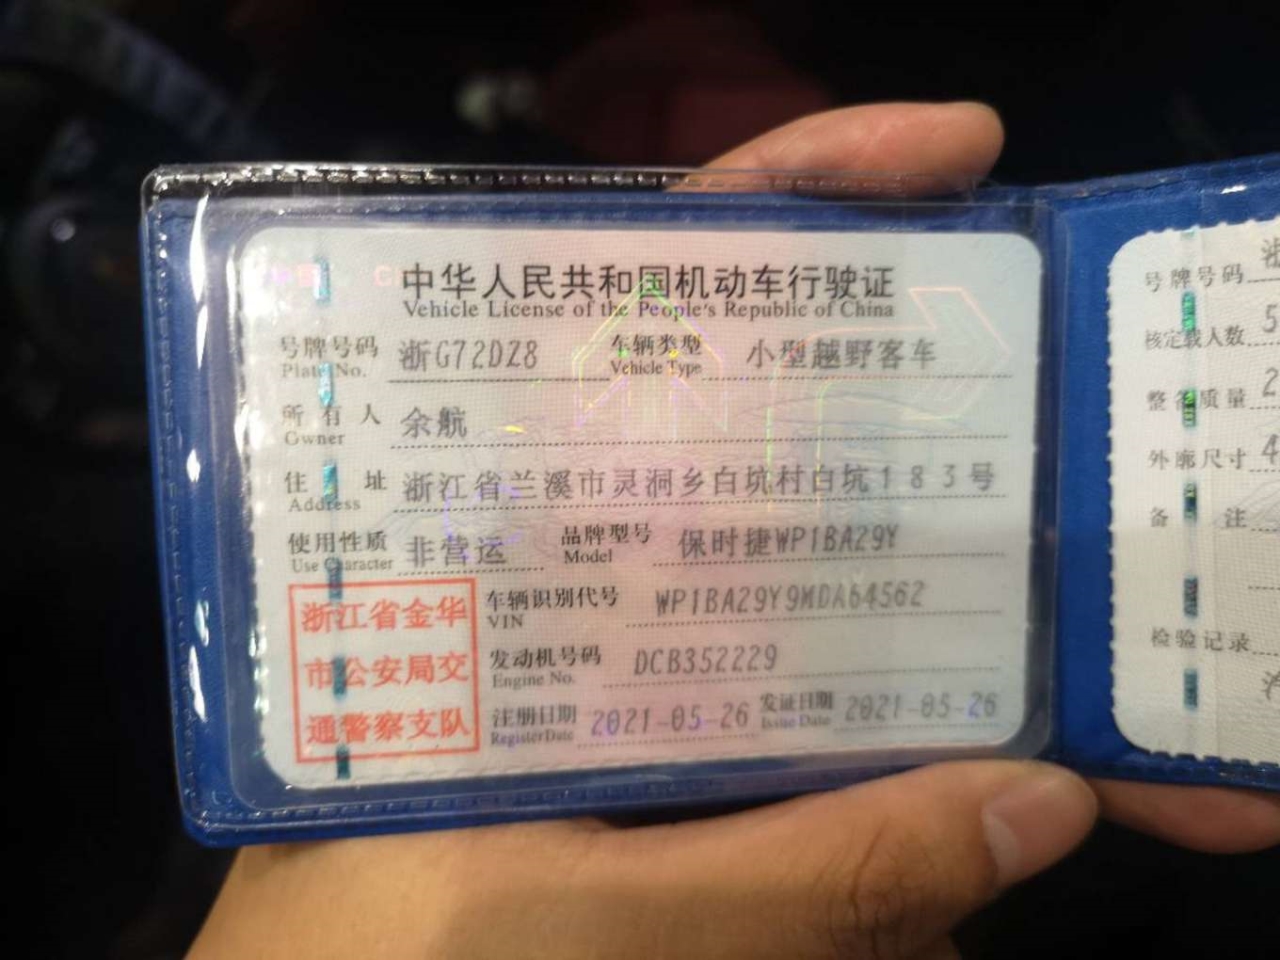 中华人民共和国机动车行驶证
Vehicle License of the People's Republic of China
号牌号码 浙G72DZ8 车辆类型 小型越野客车
Plate No. Vehicle Type
所有人 余航
Owner
住址 浙江省兰溪市灵洞乡白坑村白坑183号
Address
使用性质 非营运 品牌型号 保时捷WP1BA29Y
Use Character Model
浙江省金华
市公安局交
通警察支队
车辆识别代号 WP1BA29Y9MDA64562
VIN
发动机号码 DCB352229
Engine No.
注册日期 2021-05-26 发证日期 2021-05-26
Register Date Issue Date
号牌号码 浙
核定载人数 5
整备质量 2
外廓尺寸 4
备注
检验记录